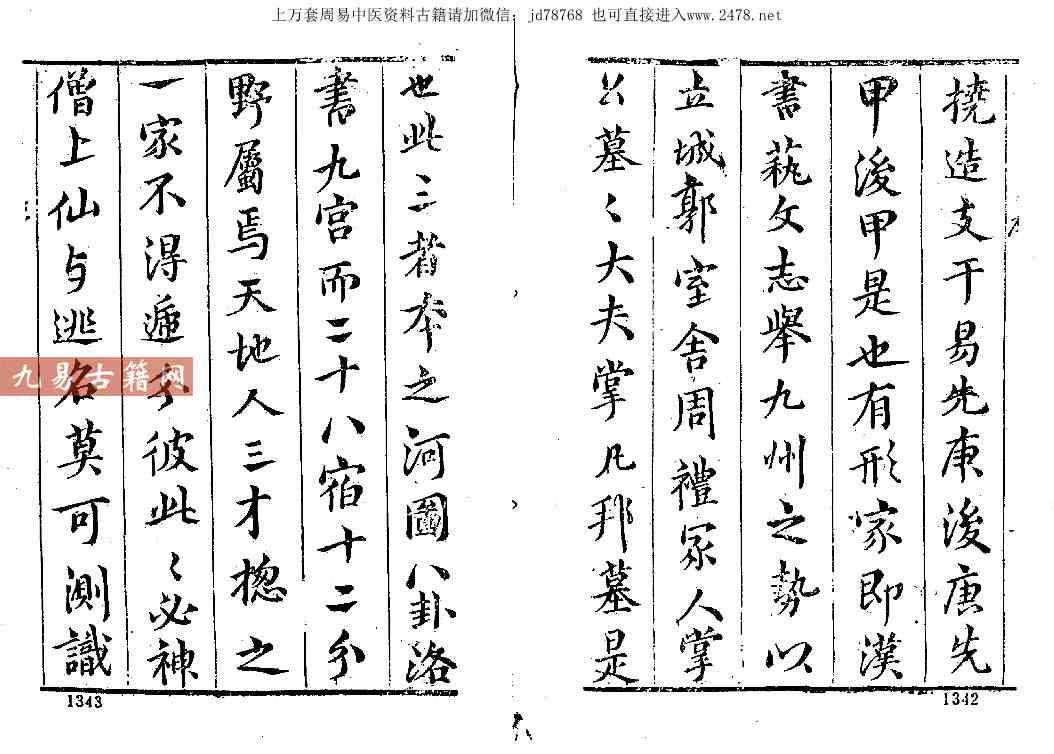 上万套周易中医资料古籍请加微信：jd78768 也可直接进入www.2478.net
撓造支干易先庚後庚先
甲後甲是也有形家即漢
書藝文志舉九州之勢以
立城郭室舍周禮冢人掌
公墓〻大夫掌凡邦墓是
1342
也此三者本之河圖八卦洛
書九宮而二十八宿十二分
野屬焉天地人三才揔之
一家不得遁於彼此〻必神
僧上仙与逃名莫可測識
1343
九易古籍网